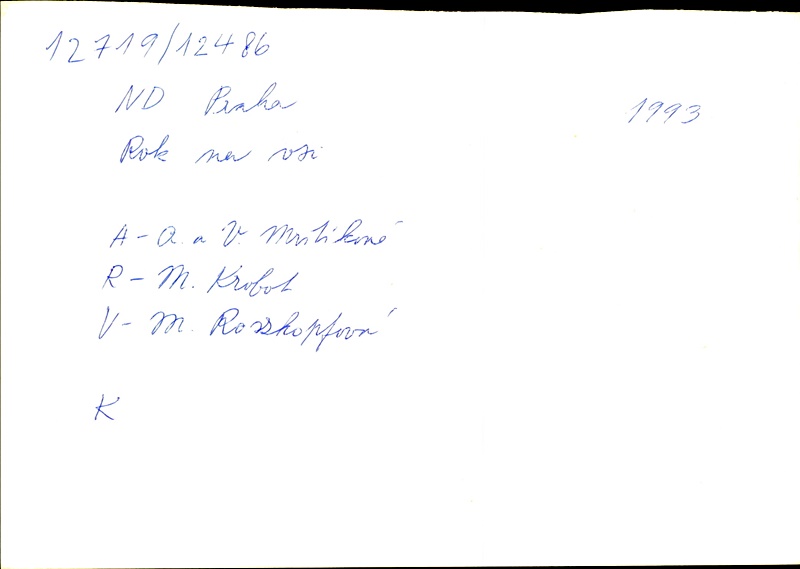 12719/12486
ND Praha 1993
Rok na vsi
A - A. a V. Mrštíkové
R - M. Krobot
V - M. Roszkopfová
K